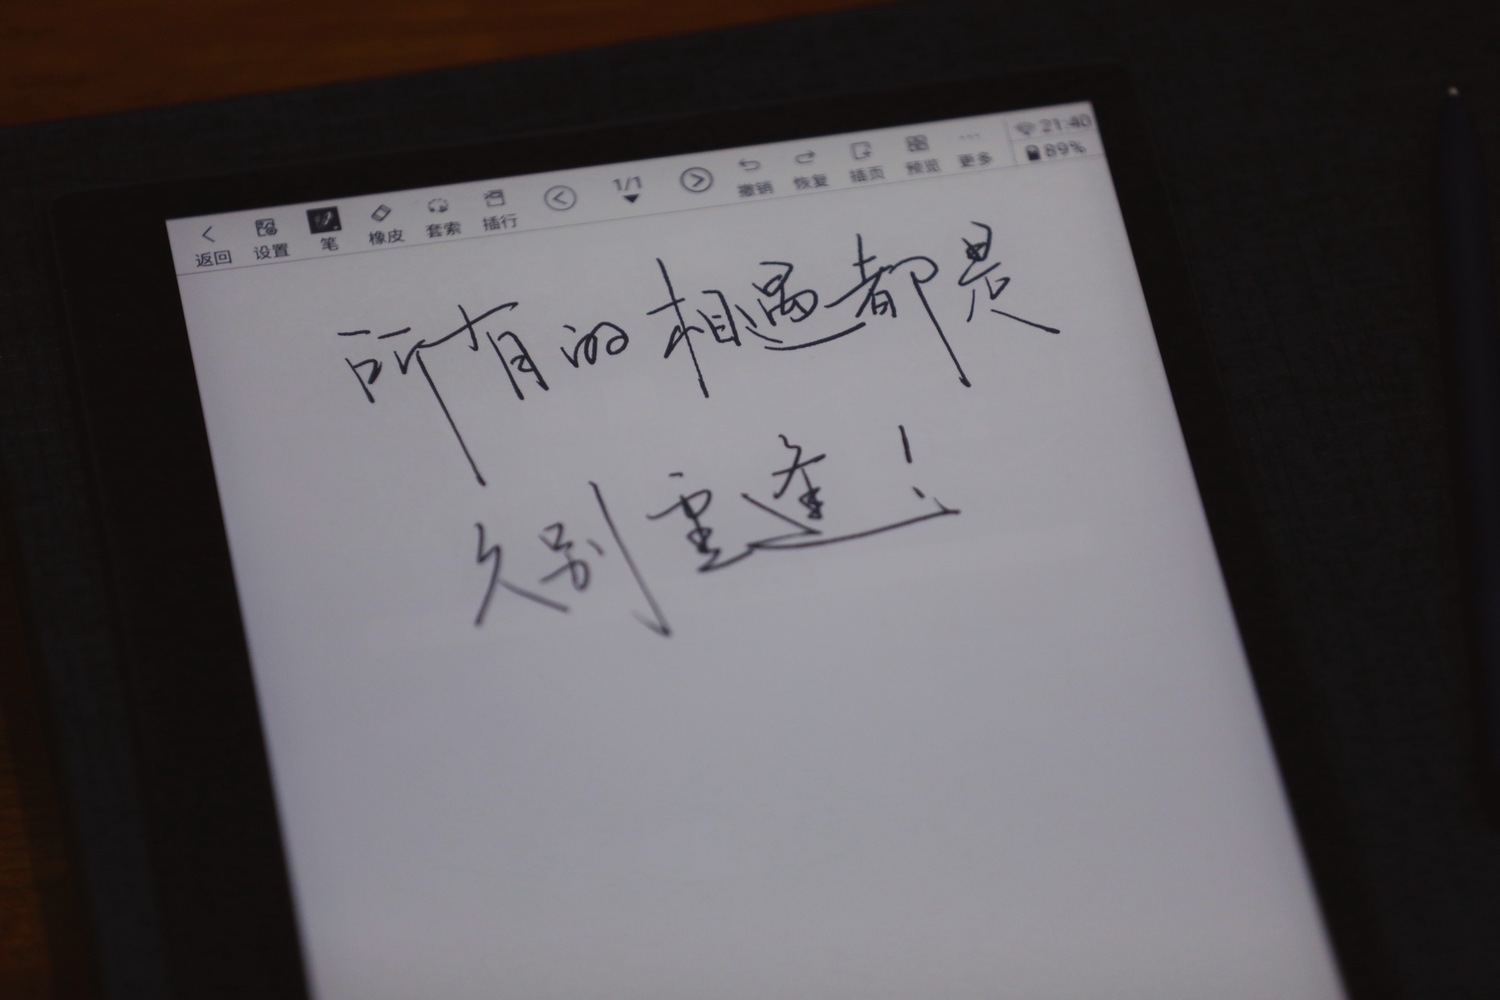 返回 设置 笔 橡皮 套索 插行 1/1 撤销 恢复 插页 预览 更多 21:40
89%
所有的相遇都是
久别重逢!